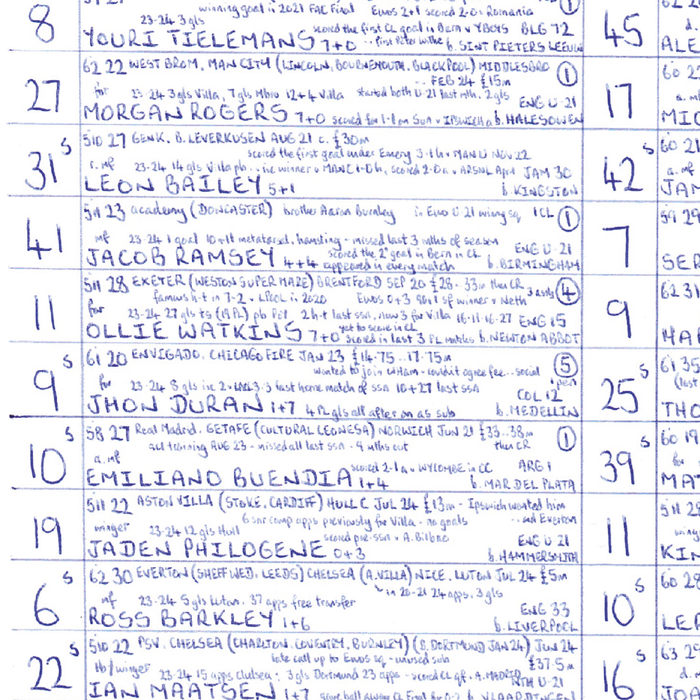 winning goal in 2021 FAC Final Euros 2+1 scored 2-0 v Romania
8 23-24 3 gls scored the first CL goal in Bern v YBOYS BLG 72
YOURI TIELEMANS 7+0 b. SINT PIETERS LEEUW
45
ALE
62 22 WEST BROM, MAN CITY (LINCOLN, BOURNEMOUTH, BLACKPOOL) MIDDLESBRO 1
FEB 24 £15m
27 for 23-24 3 gls Villa, 7 gls Mbro 12+4 Villa started both U-21 last mth. 2 gls ENG U-21
MORGAN ROGERS 7+0 scored for 1-1 on Sun v IPSWICH a b. HALESOWEN
17
MIC
31 S 510 27 GENK, B. LEVERKUSEN AUG 21 c. £30m
scored the first goal under Emery 3-1 h v MAN U NOV 22
23-24 14 gls Villa pb winner v MAN C 1-0 h, scored 2-0 a v ARSNL April JAM 30
LEON BAILEY 5+1 b. KINGSTON
42 S
JAM
41 511 23 academy (DONCASTER) brother Aaron Burnley in Euro U-21 wining sq 1CL 1
mf 23-24 1 goal 10+11 metatarsal, hamstring - missed last 3 mths of season ENG U-21
scored the 2nd goal in Bern in CL
JACOB RAMSEY 4+4 appeared in every match b. BIRMINGHAM
7
SER
11 511 28 EXETER (WESTON SUPER MARE) BRENTFORD SEP 20 £28-33m then CR 3 assts 4
famous h-t in 7-2 v LPOOL in 2020 Euros 0+3 90+1 sf winner v Neth
for 23-24 27 gls ts (19 PL) pb Per 2 h-t last ssn, now 3 for Villa 16-11-16-27 ENG 15
yet to score in CL
OLLIE WATKINS 7+0 scored in last 3 PL matches b. NEWTON ABBOT
9
9 S 61 20 ENVIGADO, CHICAGO FIRE JAN 23 £14.75..17.75m 5
wanted to join WHam - couldn't agree fee...social
for 23-24 8 gls in 3 last home match of ssn 10+27 last ssn COL 12
JHON DURAN 1+7 4 PL gls all after on as sub b. MEDELLIN
25 S
THO
10 S 58 27 Real Madrid, GETAFE (CULTURAL LEONESA) NORWICH JUN 21 £33..38m 1
ACL training AUG 23 - missed all last ssn - 9 mths out then CR
a. mf scored 2-1 a v WYCOMBE in CC ARG 1
EMILIANO BUENDIA 1+4 b. MAR DEL PLATA
39 S
MAT
19 511 22 ASTON VILLA (STOKE, CARDIFF) HULL C JUL 24 £13m - Ipswich wanted him
6 snr comp apps previously for Villa - no goals ...and Everton
winger 23-24 12 gls Hull scored pre-ssn v A. Bilbao ENG U-21
JADEN PHILOGENE 0+3 b. HAMMERSMITH
11
KIN
6 S 62 30 EVERTON (SHEFF WED, LEEDS) CHELSEA (A. VILLA) NICE, LUTON JUL 24 £5m
in 20-21 24 apps, 3 gls
mf 23-24 5 gls Luton, 37 apps free transfer ENG 33
ROSS BARKLEY 1+6 b. LIVERPOOL
10 S
LEA
22 S 510 22 PSV, CHELSEA (CHARLTON, COVENTRY, BURNLEY) (B. DORTMUND JAN 24) JUN 24
late call up to Euros sq - unused sub £37.5m
lb/winger 23-24 15 apps Chelsea; 3 gls Dortmund 23 apps - scored CL qf v A. MADRID NTH U-21
IAN MAATSEN 1+7 b. VLAARDINGEN
16 S